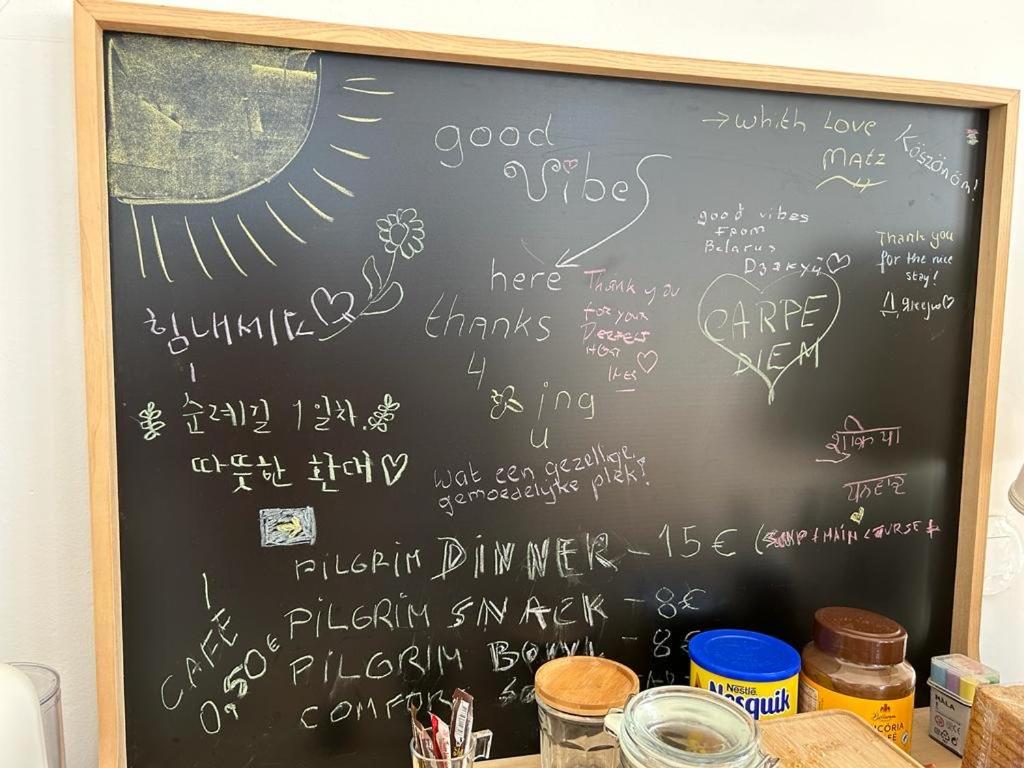 good
Vibes
here
thanks
4
ing
u
→ whith Love
Matz
Köszönöm!
good vibes
From
Belarus
Дзякуй ♡
Thank you
for the nice
stay!
CARPE
DIEM
Thank you
for your
힘내세요 ♡
순례길 1일차
따뜻한 환대 ♡
wat een gezellige,
gemoedelijke plek!
PILGRIM DINNER - 15 € (SOUP + MAIN COURSE +
PILGRIM SNACK - 8€
PILGRIM BOWL - 8€
COMFOR
CAFE
0,50€
Nestlé
Nesquik
MALA